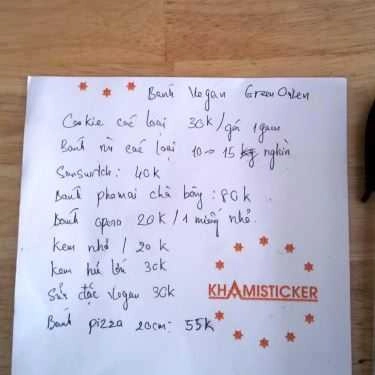 Bánh Vegan Green Onken
Cookie các loại 30k/gói 1 gam
Bánh mì các loại 10 → 15 nghìn
Sanwitch: 40k
Bánh phomai chà bông: 80k
Bánh opera 20k/1 miếng nhỏ.
Kem nhỏ / 20k
Kem hủ lớn 30k
Sữa đặc Vegan 30k
Bánh pizza 20cm: 55k
KHAMISTICKER